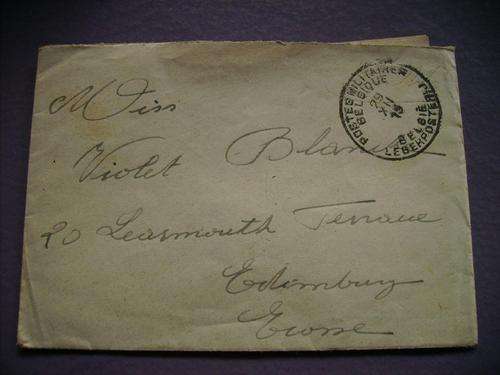 Miss
Violet Blanc
20 Learmouth Terrace
Edimburg
Ecosse
POSTES MILITAIRES
BELGIQUE
29
XII
15
BELGIË
LEGERPOSTERIJ